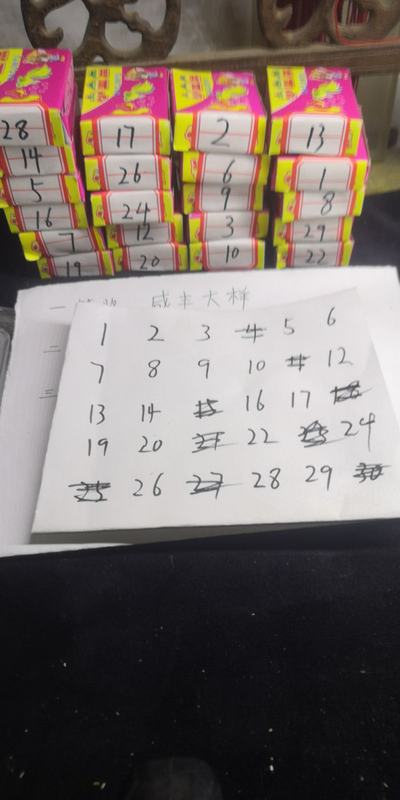 28 17 2 13
14 26 6 1
5 24 9 8
16 12 3 29
7 20 10 22
19
咸丰大样
一
二
三
1 2 3 4 5 6
7 8 9 10 11 12
13 14 15 16 17 18
19 20 21 22 23 24
25 26 27 28 29 30